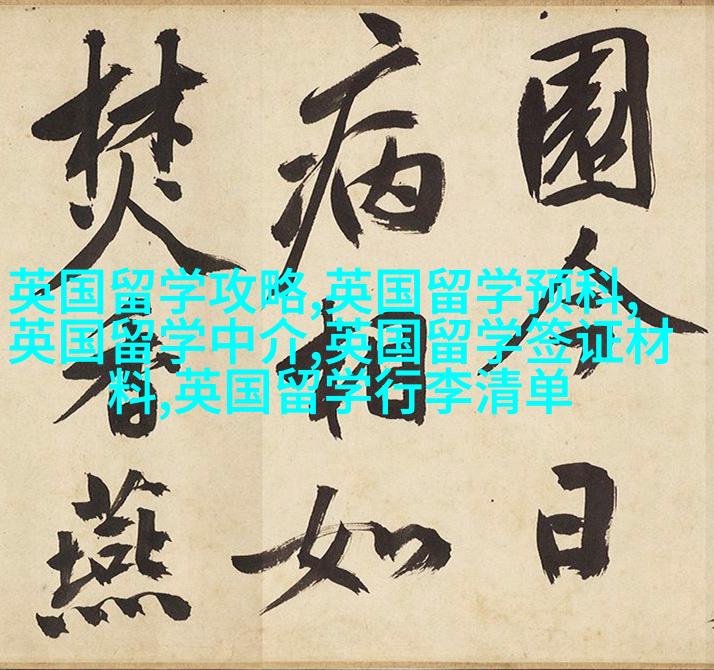 園今日
病相如
焚香燕
英国留学攻略,英国留学预科,
英国留学中介,英国留学签证材
料,英国留学行李清单